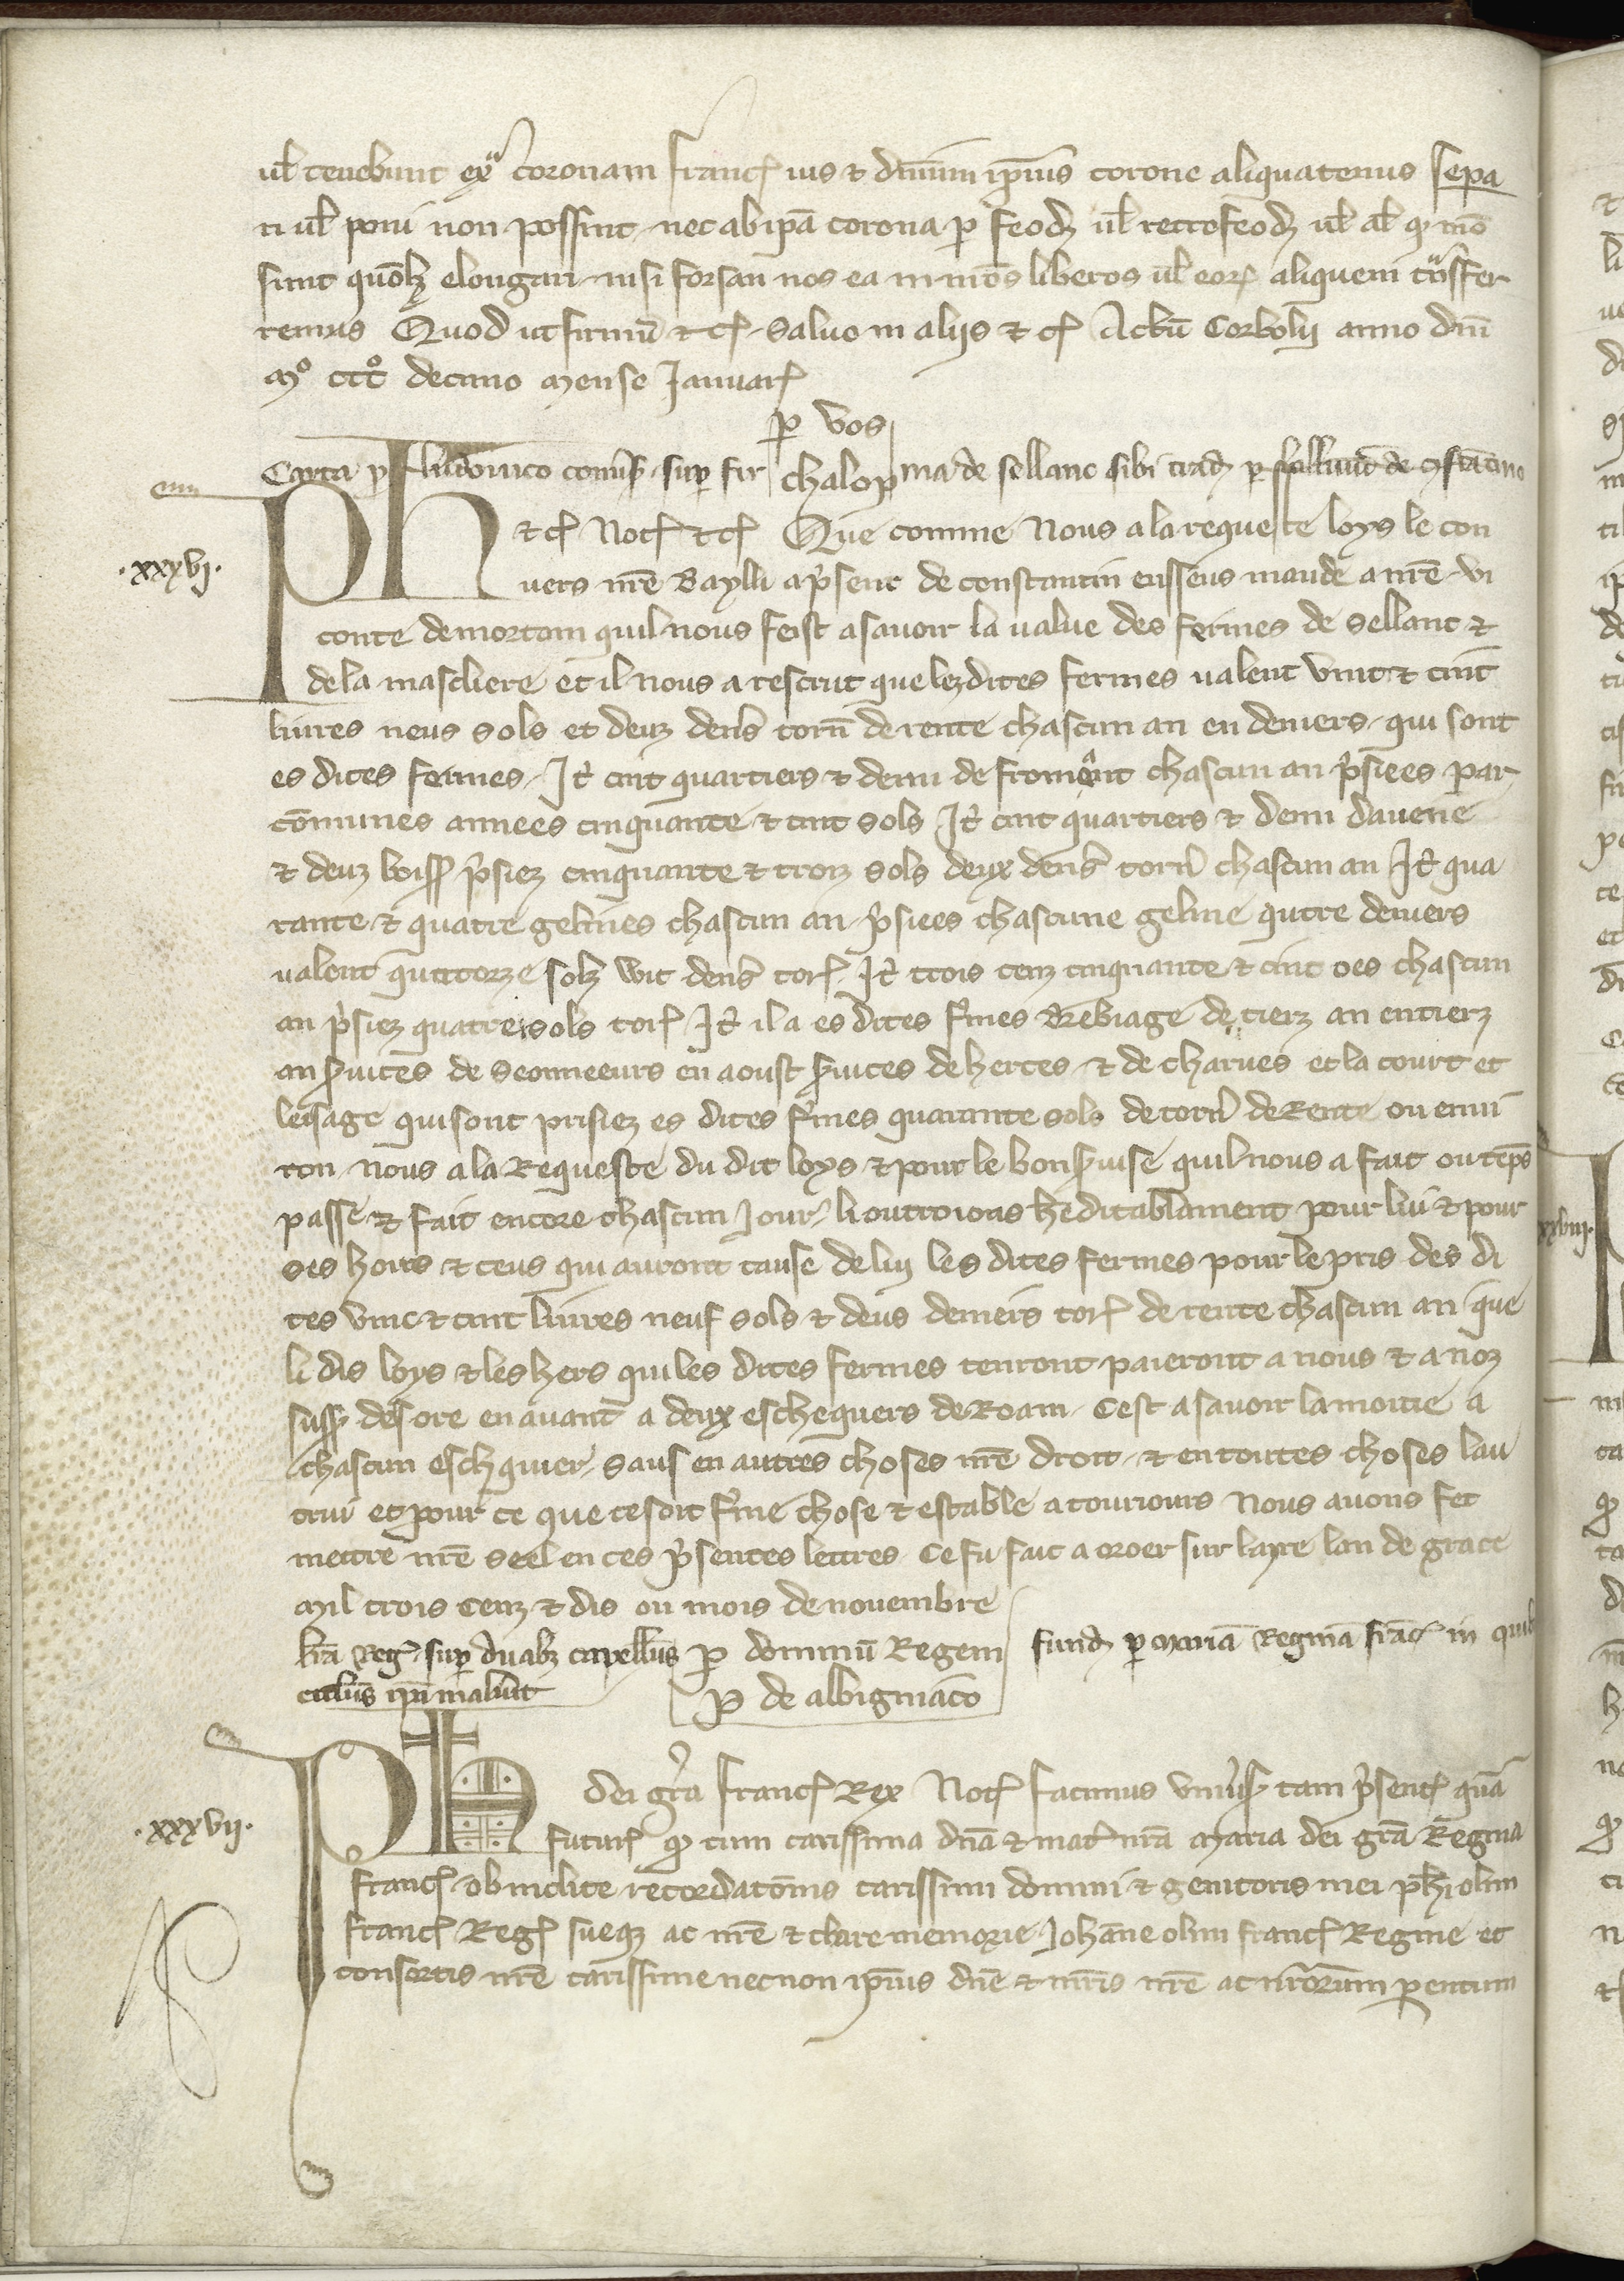 ul̄ tenebunt exᵃ coronam francꝭ ius ⁊ dn̄ium ip̄ius corone aliquatenus sepa
ri ul̄ poni non possint nec ab ip̄a corona ꝑ feodꝫ ul̄ retrofeodꝫ ul̄ al̄ qᵒ mō
sunt quōlꝫ elongari nisi forsan nos ea in nr̄os liberos ul̄ eorꝫ aliquem tᵃnsfer
remus Quod ut firmū ⁊ cꝭ saluo in aliis ⁊ cꝭ Actū Corbolii anno dn̄i
mᵒ cccᵒ decimo mense Januarꝭ
ꝑ vos
chalop
Carta ꝓ ludouico conuersꝭ sup fir ma de sellanc sibi tradꝫ ꝑ
·xxxvj·
Ph ⁊ cꝭ Notꝭ ⁊ cꝭ Que comme Nous a la requeste loys le con
uers nr̄e Baylli a p̄sent de constantin eussens mande a nr̄e vi
conte de mortoin quil nous feist asauoir la value des fermes de sellant ⁊
de la mascliere et il nous a rescrit que lezdites fermes ualent vint ⁊ cinc
liures neus sols et deuz den̄s torn̄ de rente chascun an en deniers qui sont
es dites fermes It̄ cinc quartiers ⁊ demi de froment chascun an p̄siees par
cōmunes annees cinquante ⁊ cinc sols It̄ cinc quartiers ⁊ demi dauene
⁊ deuz boiss̄ p̄siez cinquante ⁊ troiz sols deux den̄s torn̄ chascun an It̄ qua
rante ⁊ quatre gelines chascun an p̄siees chascune geline qutre deniers
ualent quatorze solz wit den̄s torꝭ It̄ trois cenz cinquante ⁊ cinc oes chascun
an p̄siez quatre sols torꝭ It̄ il a es dites f̄mes Brebiage de tierz an en tierz
an s̄uices de seonneeurs en aoust s̄uices de herces ⁊ de charues et la court et
lesage qui sont prisiez es dites f̄mes quarante sols de torn̄ de Rente ou enui
ron Nous a la Requeste du dit loys ⁊ pour le bon s̄uise quil nous a fait ou tēps
passe ⁊ fait encore chascun Jour li outroions h̄editablament pour lui ⁊ pour
ses hoirs ⁊ ceus qui auront cause de luy les dites fermes pour le pris des di
tes vinc ⁊ cinc liures neuf sols ⁊ deus deniers torꝭ de rente chascun an que
li dis loys ⁊ les hers qui les dites fermes tenront paieront a nous ⁊ a noz
suss̄ des ore en auant a deux eschequers de Roam Cest asauoir la moitie a
chascun eschquier sauf en autres choses nr̄e droit ⁊ en toutes choses lau
trui et pour ce que ce soit f̄me chose ⁊ estable a touriours Nous auons fet
mettre nr̄e seel en ces p̄sentes lettres Ce fu fait a oroer sur layre lan de grace
mil trois cenz ⁊ dis ou mois de nouembre
ꝑ dominū Regem
P de albigniaco
lr̄a Regꝭ sup duabꝫ capellīs fundꝫ ꝑ mariā Reginā francꝭ in
·xxxvij·
Ph dei gr̄a francꝭ Rex Notꝭ facimus vniūsꝭ tam p̄sentꝭ quā
futurꝭ qᵒ cum carissima dn̄a ⁊ mat̄ nr̄a maria dei gr̄a Regina
francꝭ ob inclite recordatōnis carissimi domini ⁊ genitoris mei ph̄i olim
francꝭ Regꝭ sueqꝫ ac nr̄e ⁊ clare memorie Johāne olim francꝭ Regine et
consortis nr̄e carissime necnon ip̄ius dn̄e ⁊ mr̄is nr̄e ac nr̄orum parentum